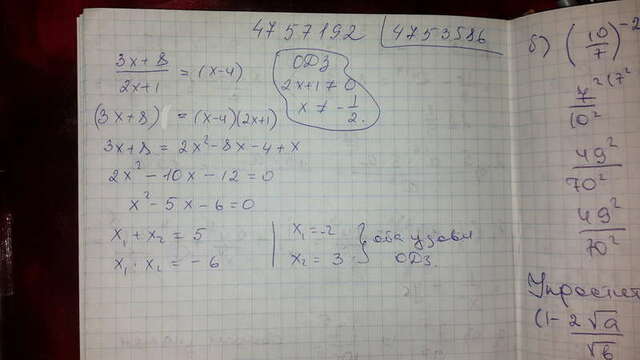 4757192 4753586
(3x+8)/(2x+1) = (x-4)
ОДЗ
2x+1 ≠ 0
x ≠ -1/2.
(3x+8) = (x-4)(2x+1)
3x+8 = 2x²-8x-4+x
2x²-10x-12=0
x²-5x-6=0
x₁+x₂ = 5
x₁·x₂ = -6
x₁=-2
x₂=3
оба удовл
ОДЗ.
б) (10/7)⁻²
49²/70²
49²/70²
(1- 2√a/√b